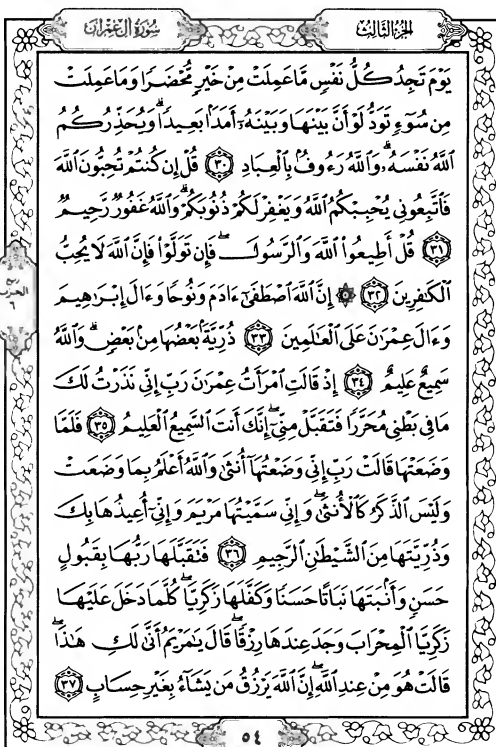 سُورَةُ آلِ عِمْرَانَ
الجُزْءُ الثَّالِثُ
يَوْمَ تَجِدُ كُلُّ نَفْسٍ مَّا عَمِلَتْ مِنْ خَيْرٍ مُّحْضَرًا وَمَا عَمِلَتْ
مِن سُوٓءٍ تَوَدُّ لَوْ أَنَّ بَيْنَهَا وَبَيْنَهُۥٓ أَمَدًۢا بَعِيدًا ۗ وَيُحَذِّرُكُمُ
ٱللَّهُ نَفْسَهُۥ ۗ وَٱللَّهُ رَءُوفٌۢ بِٱلْعِبَادِ ٣٠ قُلْ إِن كُنتُمْ تُحِبُّونَ ٱللَّهَ
فَٱتَّبِعُونِى يُحْبِبْكُمُ ٱللَّهُ وَيَغْفِرْ لَكُمْ ذُنُوبَكُمْ ۗ وَٱللَّهُ غَفُورٌ رَّحِيمٌ
٣١ قُلْ أَطِيعُوا۟ ٱللَّهَ وَٱلرَّسُولَ ۖ فَإِن تَوَلَّوْا۟ فَإِنَّ ٱللَّهَ لَا يُحِبُّ
ٱلْكَٰفِرِينَ ٣٢ ۞ إِنَّ ٱللَّهَ ٱصْطَفَىٰٓ ءَادَمَ وَنُوحًا وَءَالَ إِبْرَٰهِيمَ
وَءَالَ عِمْرَٰنَ عَلَى ٱلْعَٰلَمِينَ ٣٣ ذُرِّيَّةًۢ بَعْضُهَا مِنۢ بَعْضٍ ۗ وَٱللَّهُ
سَمِيعٌ عَلِيمٌ ٣٤ إِذْ قَالَتِ ٱمْرَأَتُ عِمْرَٰنَ رَبِّ إِنِّى نَذَرْتُ لَكَ
مَا فِى بَطْنِى مُحَرَّرًا فَتَقَبَّلْ مِنِّىٓ ۖ إِنَّكَ أَنتَ ٱلسَّمِيعُ ٱلْعَلِيمُ ٣٥ فَلَمَّا
وَضَعَتْهَا قَالَتْ رَبِّ إِنِّى وَضَعْتُهَآ أُنثَىٰ وَٱللَّهُ أَعْلَمُ بِمَا وَضَعَتْ
وَلَيْسَ ٱلذَّكَرُ كَٱلْأُنثَىٰ ۖ وَإِنِّى سَمَّيْتُهَا مَرْيَمَ وَإِنِّىٓ أُعِيذُهَا بِكَ
وَذُرِّيَّتَهَا مِنَ ٱلشَّيْطَٰنِ ٱلرَّجِيمِ ٣٦ فَتَقَبَّلَهَا رَبُّهَا بِقَبُولٍ
حَسَنٍ وَأَنۢبَتَهَا نَبَاتًا حَسَنًا وَكَفَّلَهَا زَكَرِيَّا ۖ كُلَّمَا دَخَلَ عَلَيْهَا
زَكَرِيَّا ٱلْمِحْرَابَ وَجَدَ عِندَهَا رِزْقًا ۖ قَالَ يَٰمَرْيَمُ أَنَّىٰ لَكِ هَٰذَا ۖ
قَالَتْ هُوَ مِنْ عِندِ ٱللَّهِ ۖ إِنَّ ٱللَّهَ يَرْزُقُ مَن يَشَآءُ بِغَيْرِ حِسَابٍ ٣٧
٥٤